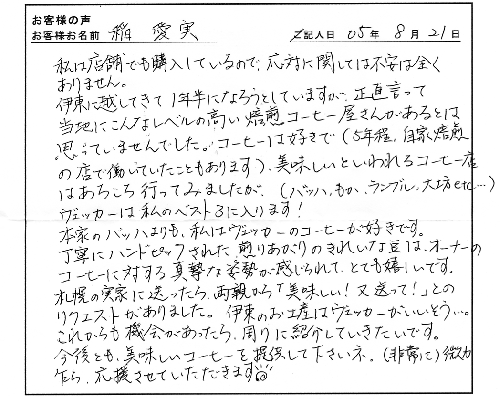 お客様の声
お客様お名前 稲 愛実 ご記入日 05年 8月 21日
私は店舗でも購入しているので、応対に関しては不安は全く
ありません。
伊東に越してきて1年半になろうとしていますが、正直言って
当地にこんなレベルの高い焙煎コーヒー屋さんがあるとは
思っていませんでした。コーヒーは好きで(5年程、自家焙煎
の店で働いていたこともあります)、美味しいといわれるコーヒー店
はあちこち行ってみましたが、(バッハ、もか、ランブル、大坊etc…)
ヴェッカーは私のベスト3に入ります!
本家のバッハよりも、私はヴェッカーのコーヒーが好きです。
丁寧にハンドピックされた、煎りあがりのきれいな豆は、オーナーの
コーヒーに対する真摯な姿勢が感じられて、とても嬉しいです。
札幌の実家に送ったら、両親から「美味しい!又送って!」との
リクエストがありました。伊東のお土産はヴェッカーがいいそう…。
これからも機会があったら、周りに紹介していきたいです。
今後とも、美味しいコーヒーを提供して下さいネ。(非常に)微力
乍ら、応援させていただきます